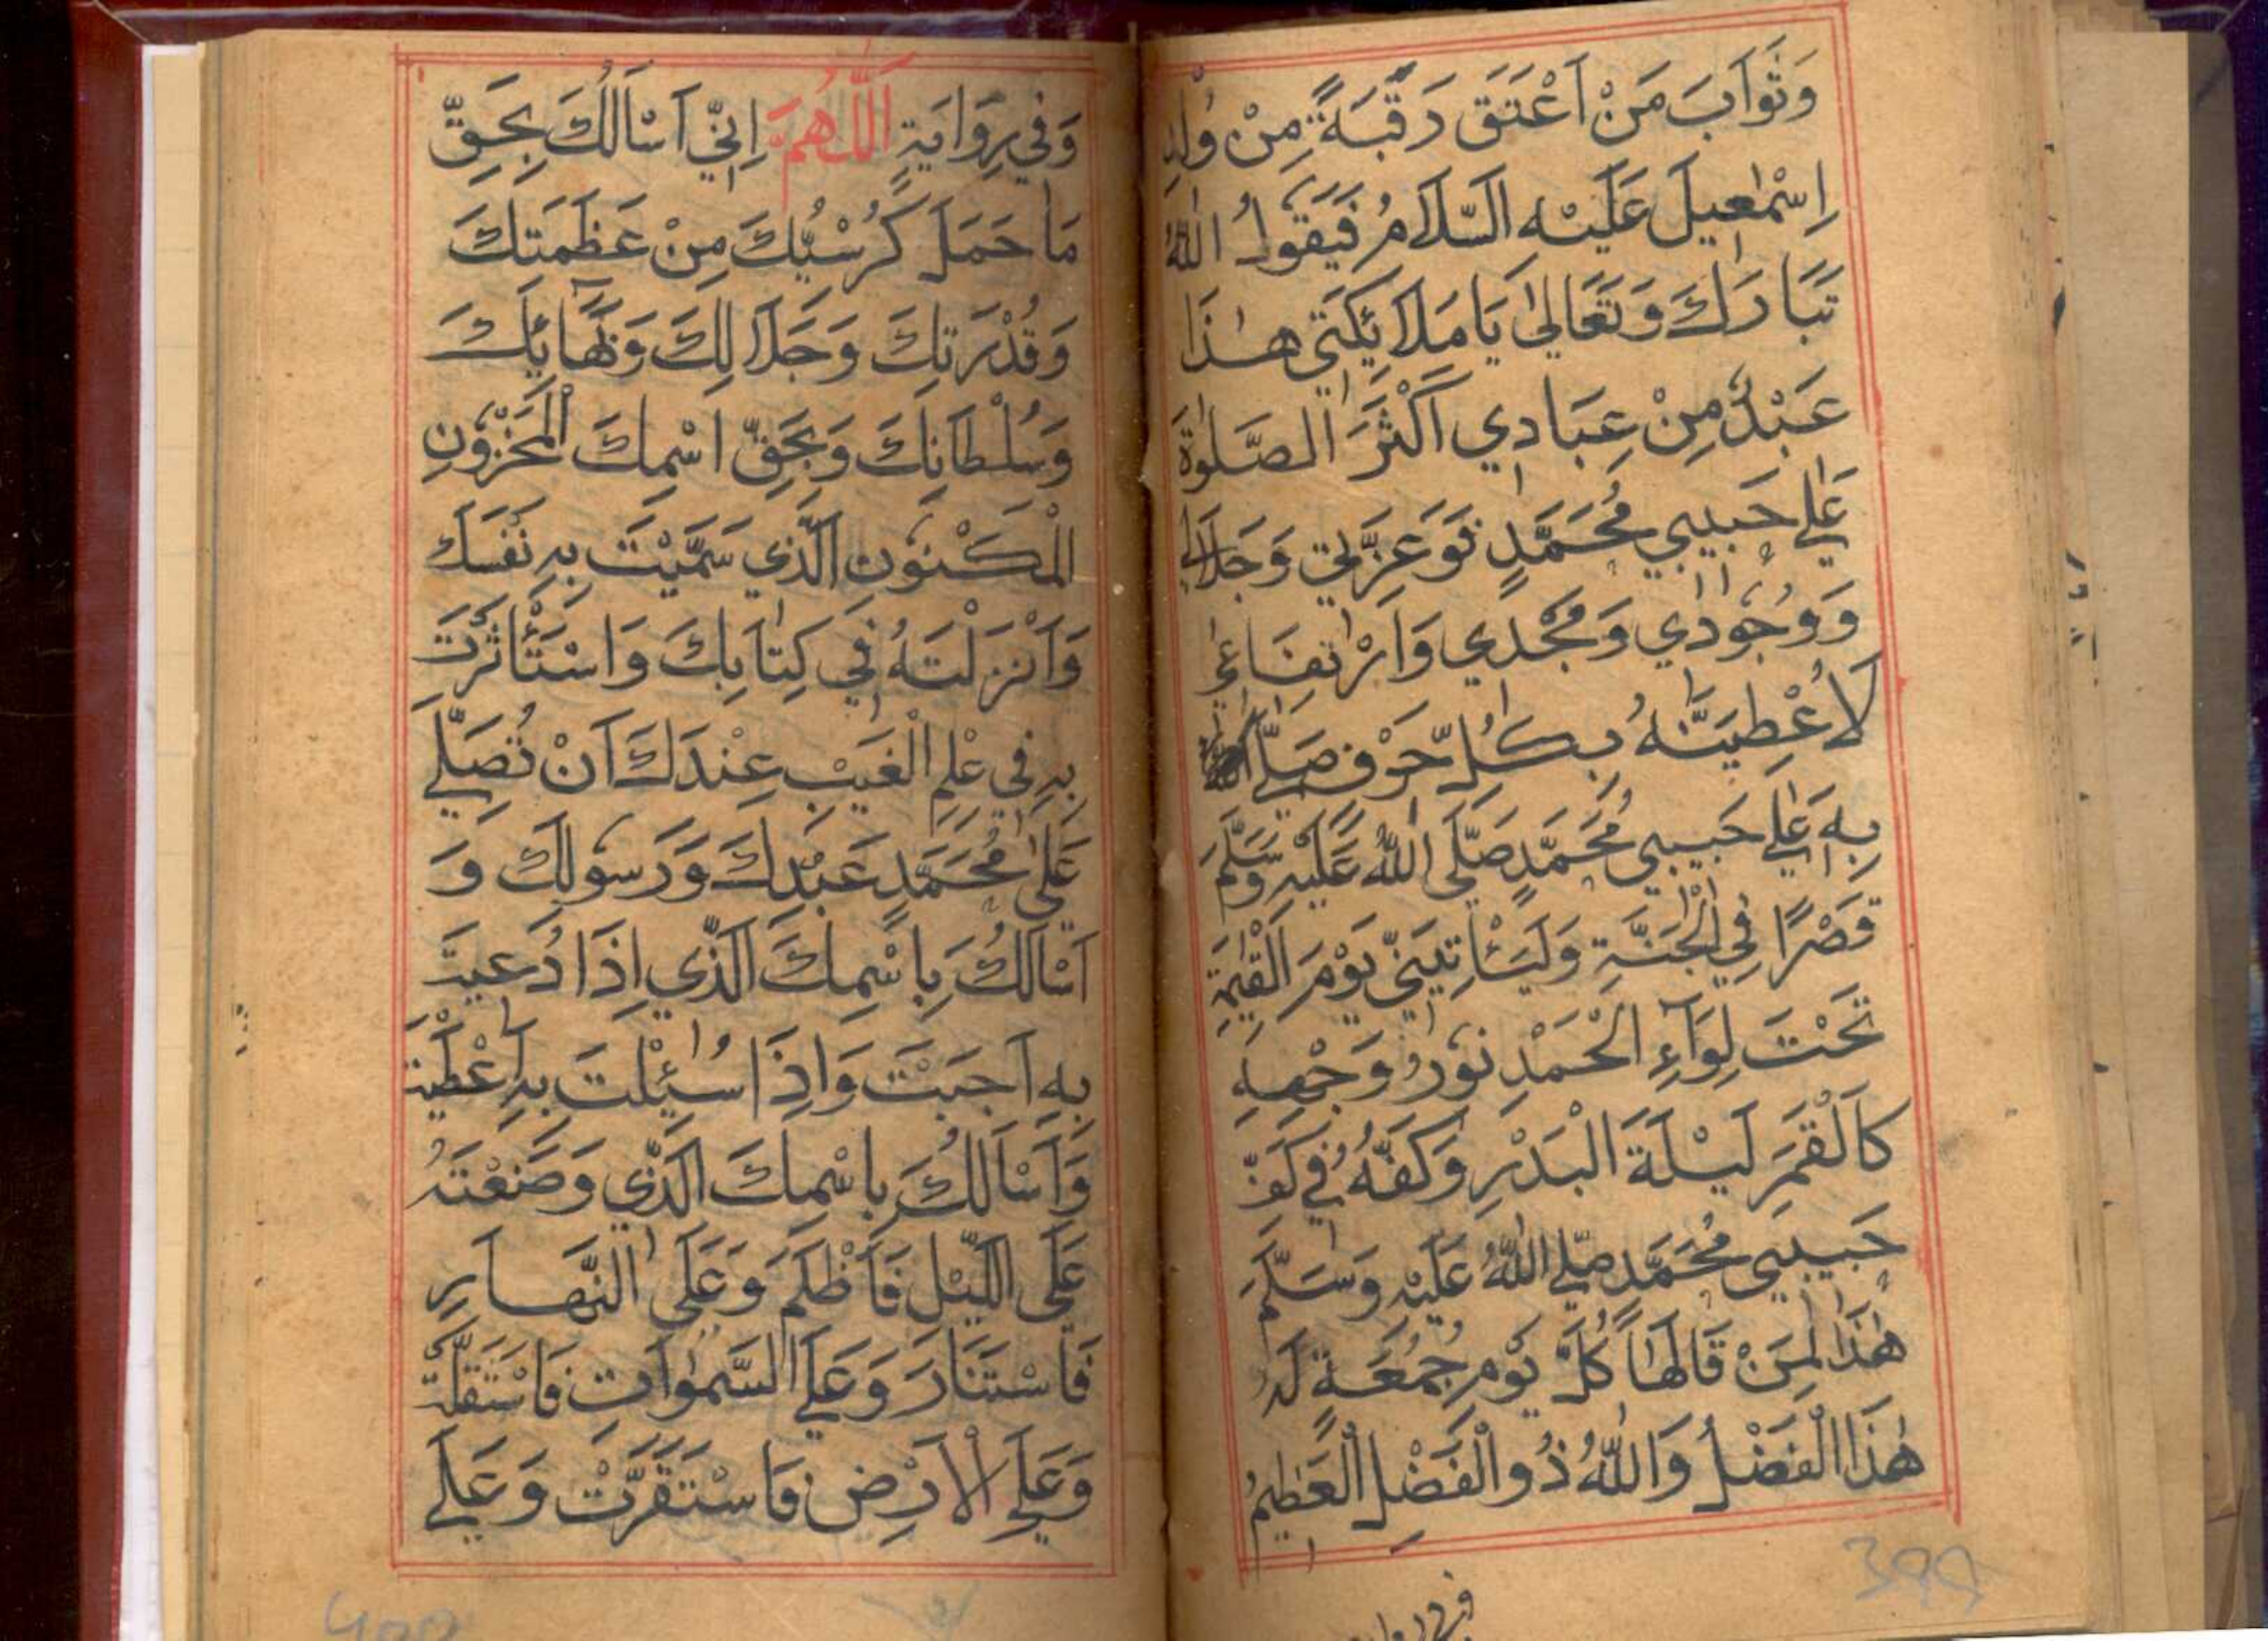 وَثَوَابَ مَنْ اَعْتَقَ رَقَبَةً مِنْ وُلْدِ
اِسْمٰعِيلَ عَلَيْهِ السَّلَامُ فَيَقُولُ اللّٰهُ
تَبَارَكَ وَتَعَالٰى يَا مَلَائِكَتِي هٰذَا
عَبْدٌ مِنْ عِبَادِي اَكْثَرَ الصَّلٰوةَ
عَلٰى حَبِيبِي مُحَمَّدٍ فَوَعِزَّتِي وَجَلَالِي
وَوُجُودِي وَمَجْدِي وَارْتِفَاعِي
لَاُعْطِيَنَّهُ بِكُلِّ حَرْفٍ صَلَّى
بِهِ عَلٰى حَبِيبِي مُحَمَّدٍ صَلَّى اللّٰهُ عَلَيْهِ وَسَلَّمَ
قَصْرًا فِي الْجَنَّةِ وَلَيَأْتِيَنِّي يَوْمَ الْقِيٰمَةِ
تَحْتَ لِوَآءِ الْحَمْدِ نُورُ وَجْهِهِ
كَالْقَمَرِ لَيْلَةَ الْبَدْرِ وَكَفُّهُ فِي كَفِّ
حَبِيبِي مُحَمَّدٍ صَلَّى اللّٰهُ عَلَيْهِ وَسَلَّمَ
هٰذَا لِمَنْ قَالَهَا كُلَّ يَوْمِ جُمُعَةٍ لَهُ
هٰذَا الْفَضْلُ وَاللّٰهُ ذُو الْفَضْلِ الْعَظِيمِ
399
وَفِي رِوَايَةٍ اَللّٰهُمَّ اِنِّي اَسْاَلُكَ بِحَقِّ
مَا حَمَلَ كُرْسِيُّكَ مِنْ عَظَمَتِكَ
وَقُدْرَتِكَ وَجَلَالِكَ وَبَهَائِكَ
وَسُلْطَانِكَ وَبِحَقِّ اسْمِكَ الْمَخْزُونِ
الْمَكْنُونِ الَّذِي سَمَّيْتَ بِهِ نَفْسَكَ
وَاَنْزَلْتَهُ فِي كِتَابِكَ وَاسْتَأْثَرْتَ
بِهِ فِي عِلْمِ الْغَيْبِ عِنْدَكَ اَنْ تُصَلِّيَ
عَلٰى مُحَمَّدٍ عَبْدِكَ وَرَسُولِكَ وَ
اَسْاَلُكَ بِاسْمِكَ الَّذِي اِذَا دُعِيتَ
بِهِ اَجَبْتَ وَاِذَا سُئِلْتَ بِهِ اَعْطَيْتَ
وَاَسْاَلُكَ بِاسْمِكَ الَّذِي وَضَعْتَهُ
عَلَى اللَّيْلِ فَاَظْلَمَ وَعَلَى النَّهَارِ
فَاسْتَنَارَ وَعَلَى السَّمٰوَاتِ فَاسْتَقَلَّتْ
وَعَلَى الْاَرْضِ فَاسْتَقَرَّتْ وَعَلَى
400